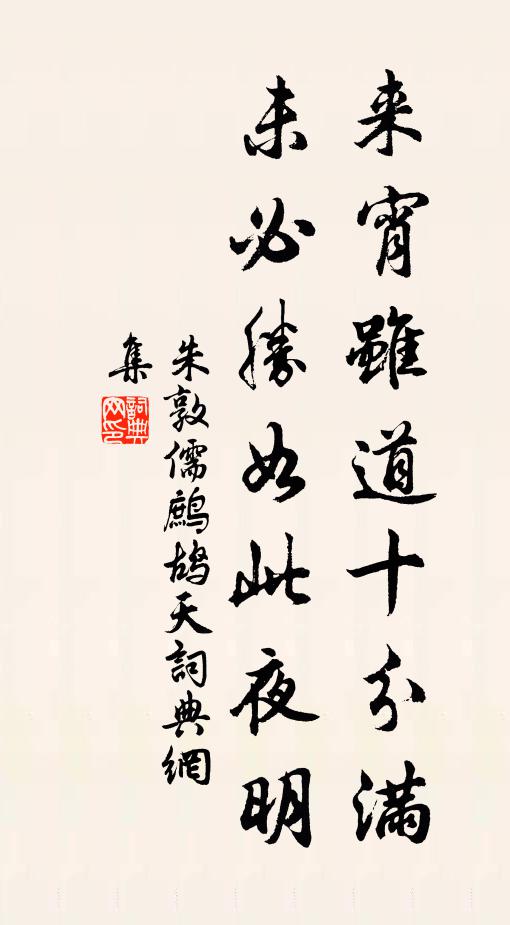 来宵雖道十分滿
未必勝如此夜明
朱敦儒鷓鴣天詞典網
集
詞典網印